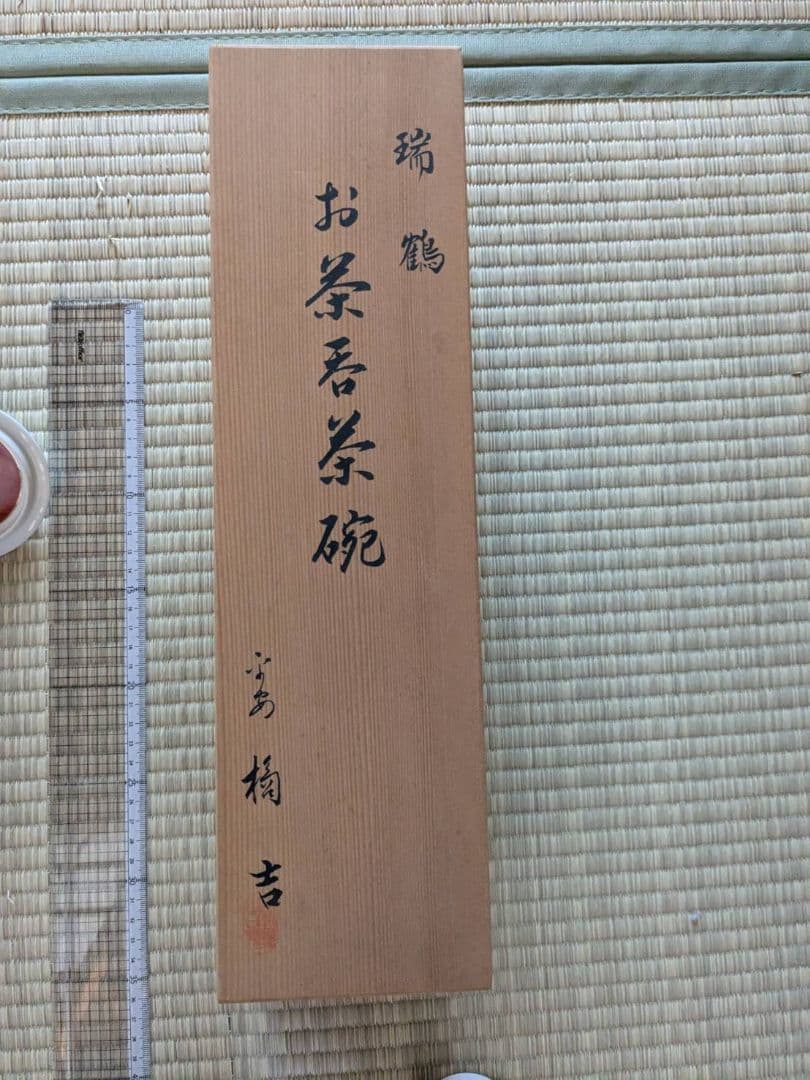 瑞鶴
お茶呑茶碗
平安 橘吉